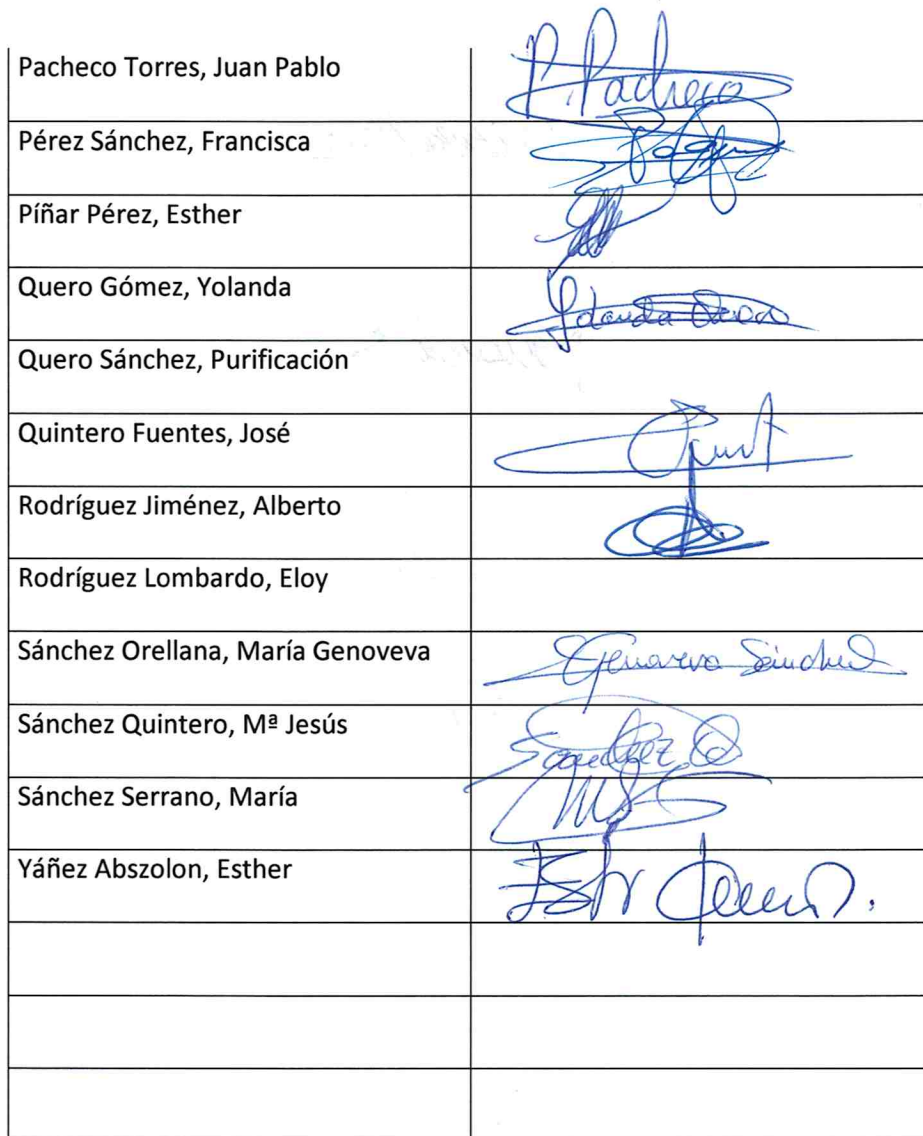 Pacheco Torres, Juan Pablo P. Pacheco
Pérez Sánchez, Francisca
Píñar Pérez, Esther
Quero Gómez, Yolanda Yolanda Quero
Quero Sánchez, Purificación
Quintero Fuentes, José
Rodríguez Jiménez, Alberto
Rodríguez Lombardo, Eloy
Sánchez Orellana, María Genoveva Genoveva Sánchez
Sánchez Quintero, Mª Jesús Sánchez Q
Sánchez Serrano, María
Yáñez Abszolon, Esther